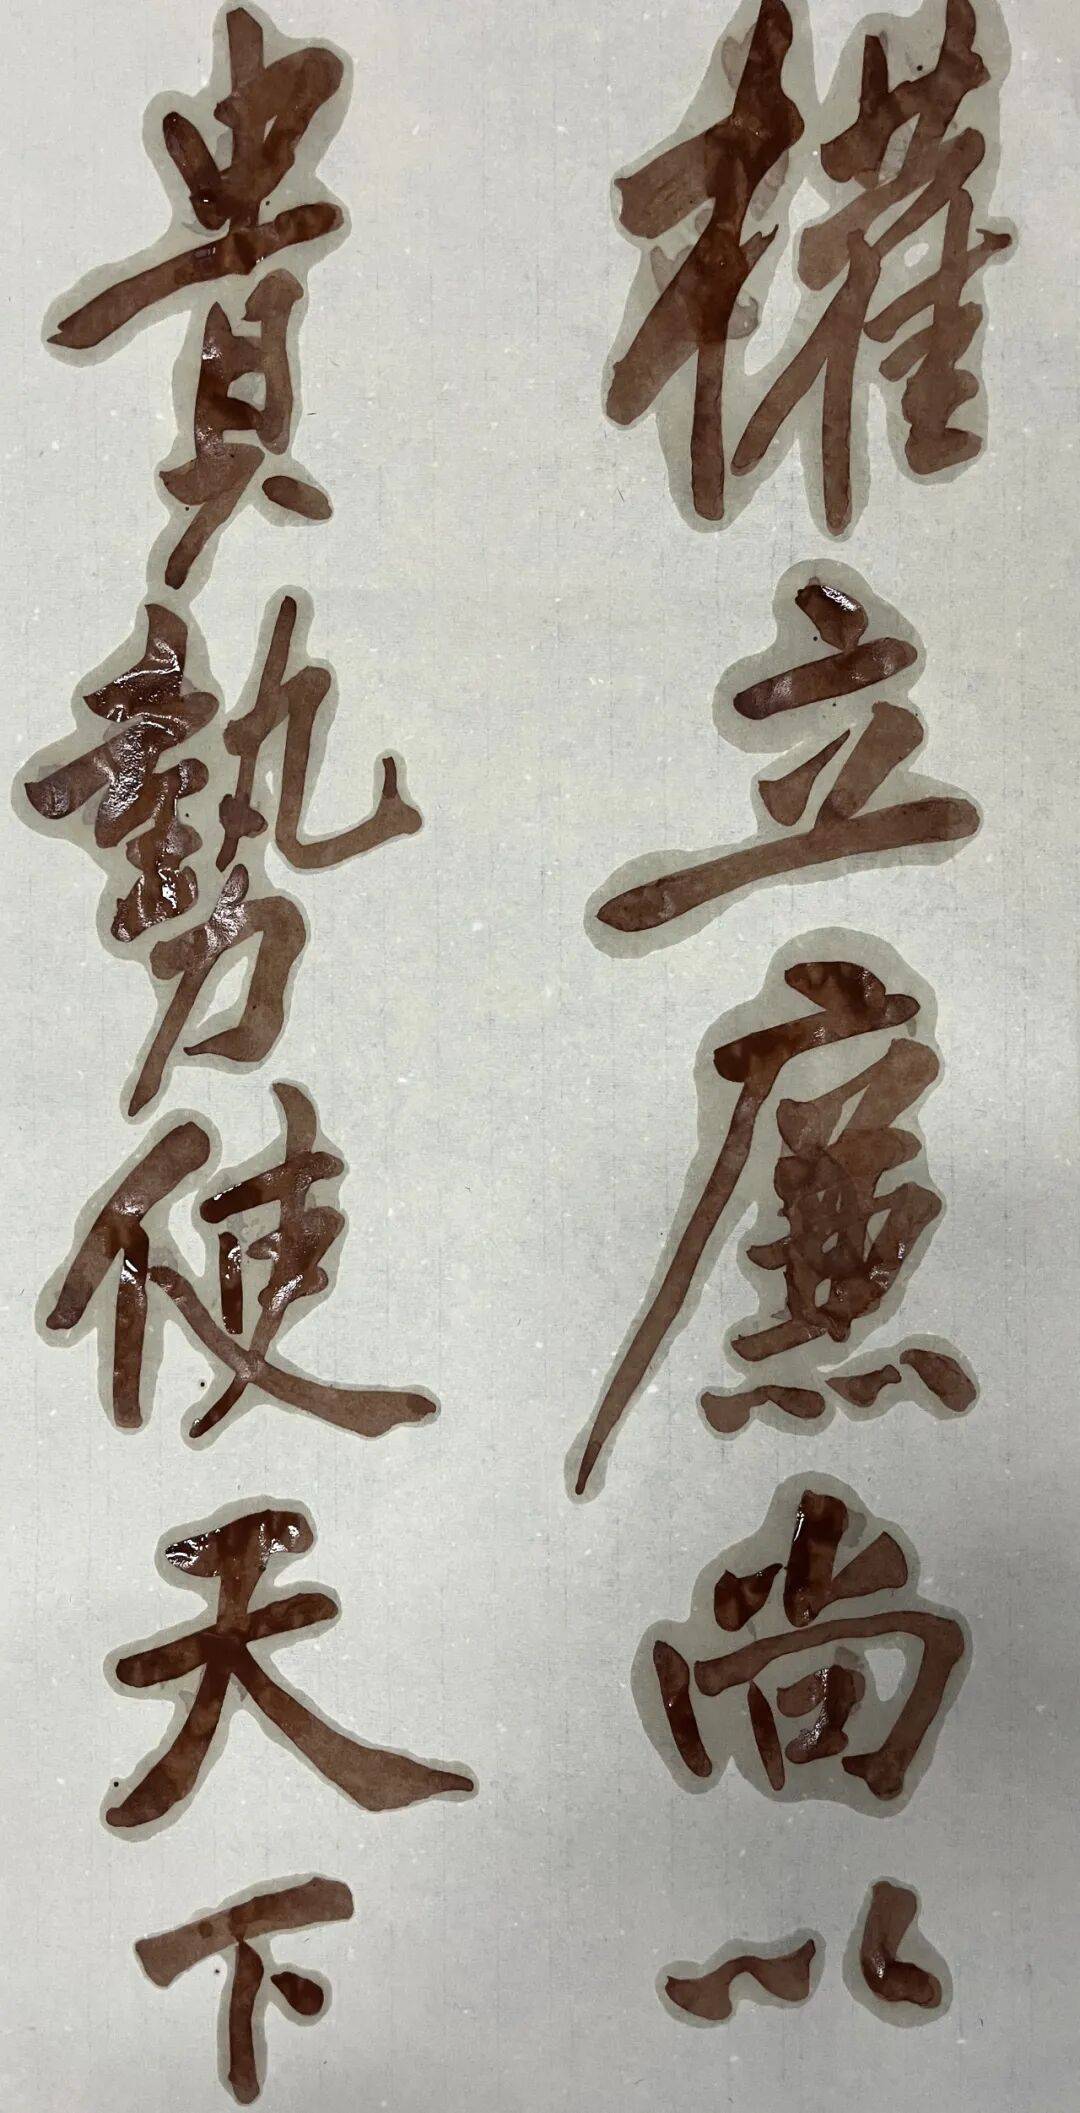 權立廉尚以
貴勢使天下